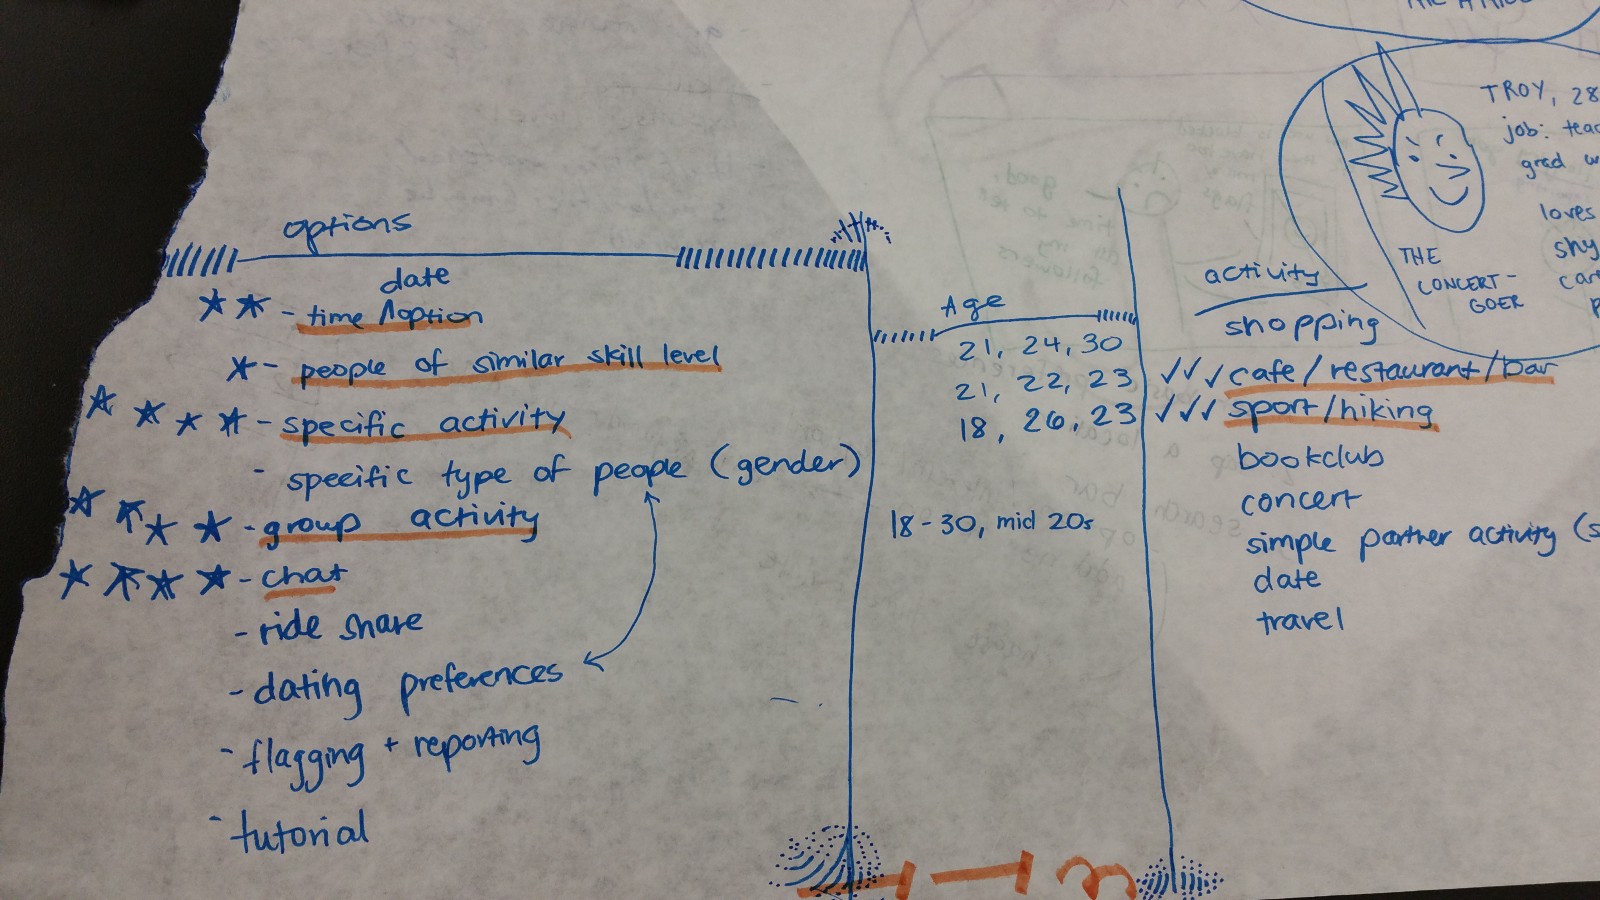 options
date
- time ^option
- people of similar skill level
- specific activity
- specific type of people (gender)
- group activity
- chat
- ride share
- dating preferences
- flagging + reporting
- tutorial
Age
21, 24, 30
21, 22, 23
18, 26, 23
18-30, mid 20s
activity
shopping
✓✓✓ cafe/restaurant/bar
✓✓✓ sport/hiking
bookclub
concert
simple partner activity (s
date
travel
TROY, 28
job: teac
grad w
loves
shy
THE
CONCERT-
GOER